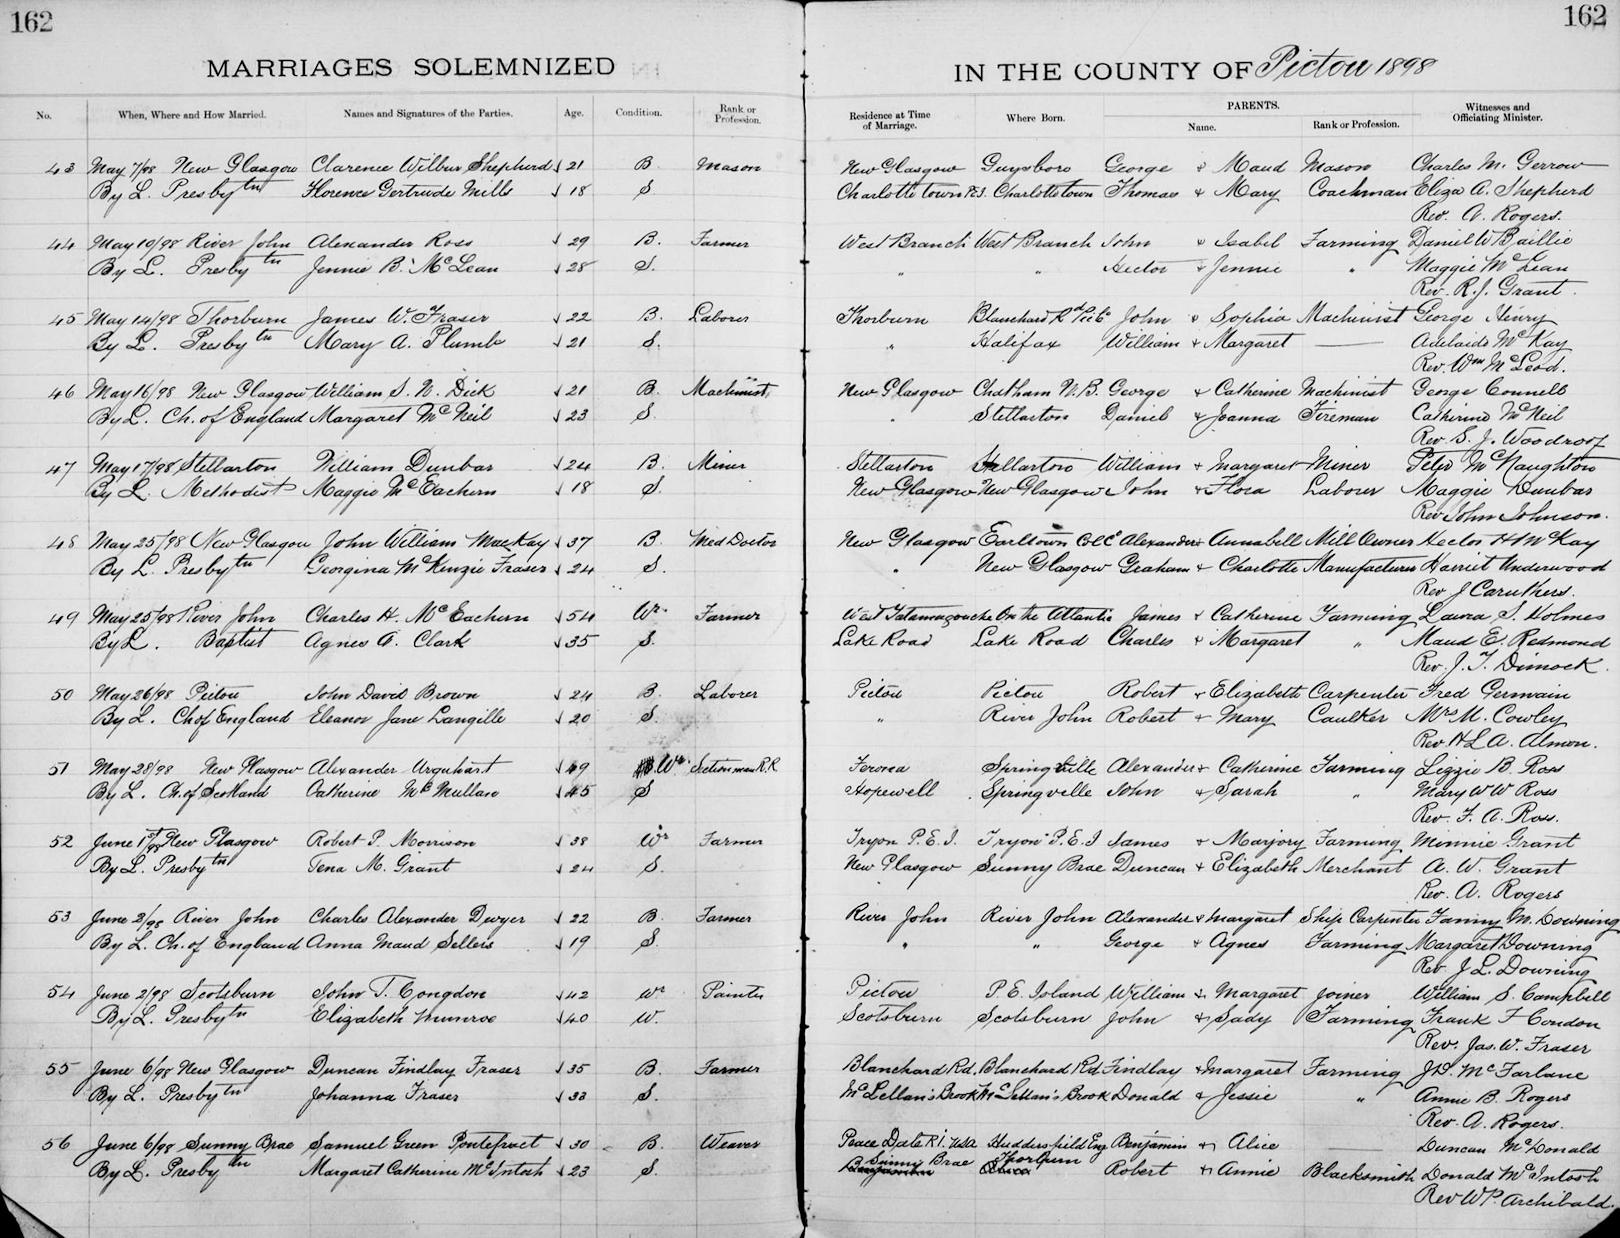 162
162
MARRIAGES SOLEMNIZED IN THE COUNTY OF Pictou 1898
No. When, Where and How Married. Names and Signatures of the Parties. Age. Condition. Rank or Profession. Residence at Time of Marriage. Where Born. PARENTS. Name. Rank or Profession. Witnesses and Officiating Minister.
43 May 7/98 New Glasgow Clarence Wilbur Shepherd 21 B. Mason New Glasgow Guysboro George & Maud Mason Charles M. Gerrow
By L. Presbytn Florence Gertrude Mills 18 S. Charlottetown P.E.I. Charlottetown Thomas & Mary Coachman Eliza A. Shepherd
Rev. A. Rogers.
44 May 10/98 River John Alexander Ross 29 B. Farmer West Branch West Branch John & Isabel Farming Daniel W Baillie
By L. Presbytn Jennie B. McLean 28 S. " " Hector & Jennie " Maggie McLean
Rev. R.J. Grant.
45 May 14/98 Thorburn James W. Fraser 22 B. Laborer Thorburn Blanchard Rd Pic Co John & Sophia Machinist George Henry
By L. Presbytn Mary A. Plumb 21 S. " Halifax William & Margaret — Adelaide McKay
Rev. Wm McLeod.
46 May 16/98 New Glasgow William S. N. Dick 21 B. Machinist New Glasgow Chatham N.B. George & Catherine Machinist George Connell
By L. Ch. of England Margaret McNeil 23 S. " Stellarton Daniel & Joanna Fireman Catherine McNeil
Rev. S. J. Woodroof
47 May 17/98 Stellarton William Dunbar 24 B. Miner Stellarton Stellarton William & Margaret Miner Peter McNaughton
By L. Methodist Maggie McEachern 18 S. New Glasgow New Glasgow John & Flora Laborer Maggie Dunbar
Rev. John Johnson.
48 May 25/98 New Glasgow John William MacKay 37 B. Med Doctor New Glasgow Earltown Col Co Alexander & Annabell Mill Owner Hector H McKay
By L. Presbytn Georgina McKenzie Fraser 24 S. " New Glasgow Graham & Charlotte Manufacturer Harriet Underwood
Rev J Caruthers.
49 May 25/98 River John Charles H. McEachern 54 Wr. Farmer West Tatamagouche On the Atlantic James & Catherine Farming Laura S. Holmes
By L. Baptist Agnes A. Clark 35 S. Lake Road Lake Road Charles & Margaret " Maud E. Redmond
Rev. J. T. Dimock.
50 May 26/98 Pictou John David Brown 24 B. Laborer Pictou Pictou Robert & Elizabeth Carpenter Fred Germain
By L. Ch of England Eleanor Jane Langille 20 S. " River John Robert & Mary Caulker Mrs M. Cowley
Rev. H L A. Almon.
51 May 28/98 New Glasgow Alexander Urquhart 49 Wr. Sectionman R.R Ferona Springville Alexander & Catherine Farming Lizzie B. Ross
By L. Ch. of Scotland Catherine McMullan 45 S Hopewell Springville John & Sarah " Mary W W Ross
Rev. F. A. Ross.
52 June 1st/98 New Glasgow Robert P. Morrison 38 Wr Farmer Tryon P.E.I. Tryon P.E.I James & Marjory Farming Minnie Grant
By L. Presbytn Tena M. Grant 24 S. New Glasgow Sunny Brae Duncan & Elizabeth Merchant A. W. Grant
Rev. A. Rogers
53 June 2/98 River John Charles Alexander Dwyer 22 B. Farmer River John River John Alexander & Margaret Ship Carpenter Fanny M. Downing
By L. Ch. of England Anna Maud Sellers 19 S. " " George & Agnes Farming Margaret Downing
Rev. J L. Downing
54 June 2/98 Scotsburn John T. Congdon 42 Wr Painter Pictou P. E. Island William & Margaret Joiner William S. Campbell
By L. Presbytn Elizabeth Munroe 40 W. Scotsburn Scotsburn John & Sady Farming Frank F Condon
Rev. Jas. W. Fraser
55 June 6/98 New Glasgow Duncan Findlay Fraser 35 B. Farmer Blanchard Rd. Blanchard Rd Findlay & Margaret Farming J.D. McFarlane
By L. Presbytn Johanna Fraser 33 S. McLellan's Brook McLellan's Brook Donald & Jessie " Annie B. Rogers
Rev. A. Rogers.
56 June 6/98 Sunny Brae Samuel Green Pontefract 30 B. Weaver Peace Dale R.I. USA Huddersfield Eng Benjamin & Alice Duncan McDonald
By L. Presbytn Margaret Catherine McIntosh 23 S. Sunny Brae Thorburn Robert & Annie Blacksmith Donald McIntosh
Rev W P. Archibald.